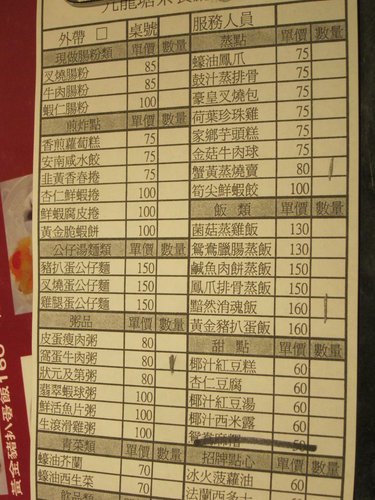 外帶 □ 桌號
現做腸粉類 單價 數量
叉燒腸粉 85
牛肉腸粉 85
蝦仁腸粉 100
煎炸點 單價 數量
香煎蘿蔔糕 75
安南咸水餃 75
韭黃香春捲 75
杏仁鮮蝦捲 100
鮮蝦腐皮捲 100
黃金脆蝦餅 100
公仔湯麵類 單價 數量
豬扒蛋公仔麵 150
叉燒蛋公仔麵 150
雞腿蛋公仔麵 150
粥品 單價 數量
皮蛋瘦肉粥 80
窩蛋牛肉粥 80
狀元及第粥 80
翡翠蝦球粥 100
鮮活魚片粥 100
生滾滑雞粥 100
青菜類 單價 數量
蠔油芥蘭 70
蠔油西生菜 70
飲品類 單價 數量
服務人員
蒸點 單價 數量
蠔油鳳爪 75
鼓汁蒸排骨 75
豪皇叉燒包 75
荷葉珍珠雞 75
家鄉芋頭糕 75
金菇牛肉球 75
蟹黃蒸燒賣 80
筍尖鮮蝦餃 100
飯類 單價 數量
菌菇蒸雞飯 130
鴛鴦臘腸蒸飯 130
鹹魚肉餅蒸飯 150
鳳爪排骨蒸飯 150
黯然消魂飯 160
黃金豬扒蛋飯 160
甜點 單價 數量
椰汁紅豆糕 60
杏仁豆腐 60
椰汁紅豆湯 60
椰汁西米露 60
50
招牌點心 單價 數量
冰火菠蘿油 60
法蘭西多士